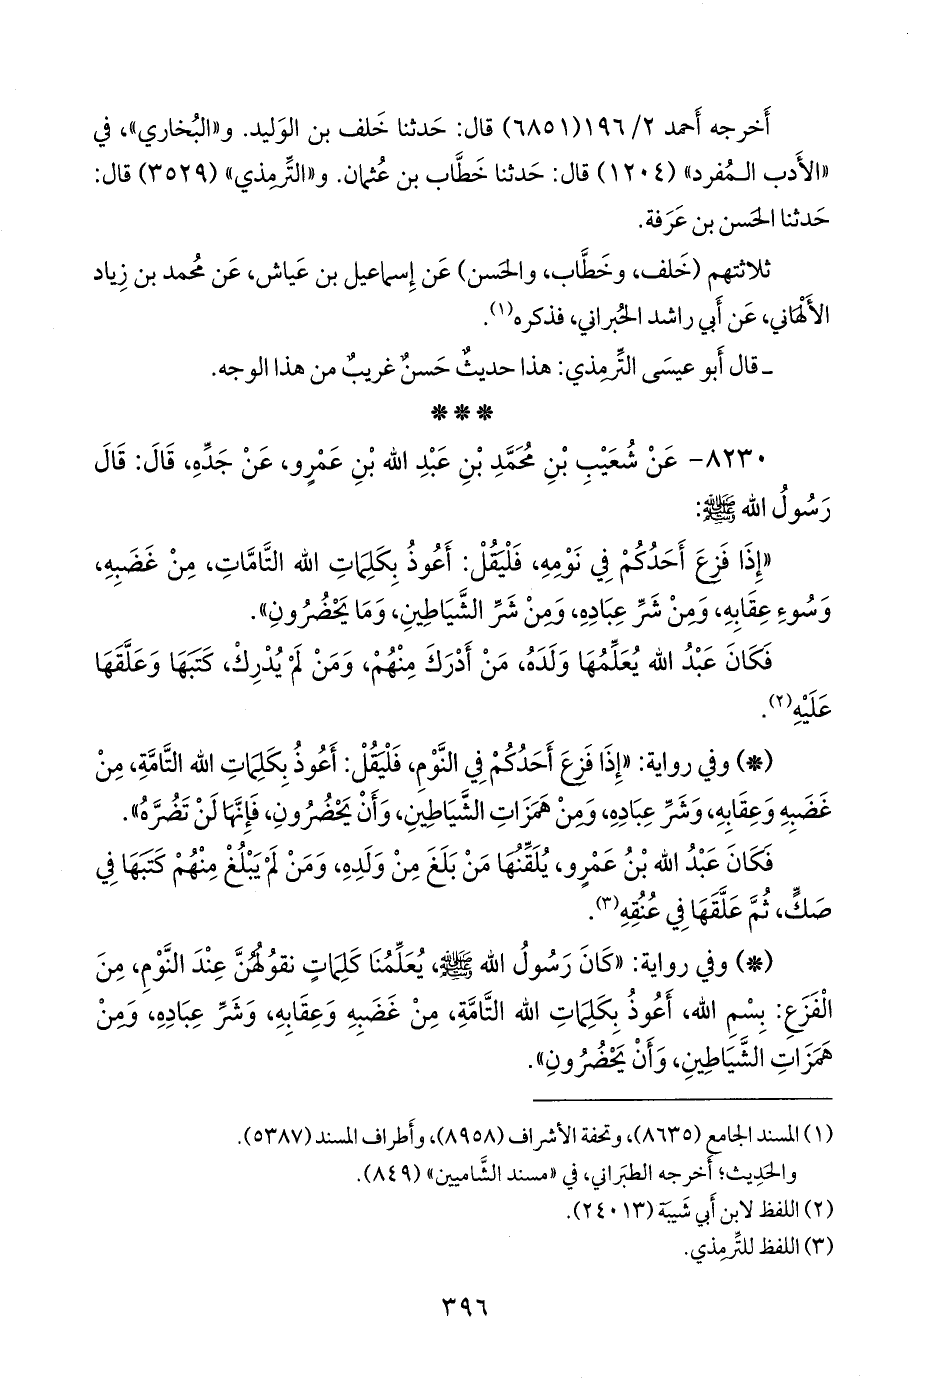 أَخرجه أَحمد ٢/ ١٩٦(٦٨٥١) قال: حَدثنا خَلف بن الوَليد. و«البُخاري»، في
«الأَدب الـمُفرد» (١٢٠٤) قال: حَدثنا خَطَّاب بن عُثمان. و«التِّرمِذي» (٣٥٢٩) قال:
حَدثنا الحَسن بن عَرَفة.
ثلاثتهم (خَلف، وخَطَّاب، والحَسن) عَن إِسماعيل بن عَياش، عَن مُحمد بن زِياد
الأَلْهَاني، عَن أَبي راشد الحُبراني، فذكره(١).
ـ قال أَبو عيسَى التِّرمِذي: هذا حديثٌ حَسنٌ غريبٌ من هذا الوجه.
***
٨٢٣٠- عَنْ شُعَيْبِ بْنِ مُحَمَّدِ بْنِ عَبْدِ الله بْنِ عَمْرٍو، عَنْ جَدِّهِ، قَالَ: قَالَ
رَسُولُ الله ﷺ:
«إِذَا فَزِعَ أَحَدُكُمْ فِي نَوْمِهِ، فَلْيَقُلْ: أَعُوذُ بِكَلِمَاتِ الله التَّامَّاتِ، مِنْ غَضَبِهِ،
وَسُوءِ عِقَابِهِ، وَمِنْ شَرِّ عِبَادِهِ، وَمِنْ شَرِّ الشَّيَاطِينِ، وَمَا يَحْضُرُونِ».
فَكَانَ عَبْدُ الله يُعَلِّمُهَا وَلَدَهُ، مَنْ أَدْرَكَ مِنْهُمْ، وَمَنْ لَمْ يُدْرِكْ، كَتَبَهَا وَعَلَّقَهَا
عَلَيْهِ(٢).
(*) وفي رواية: «إِذَا فَزِعَ أَحَدُكُمْ فِي النَّوْمِ، فَلْيَقُلْ: أَعُوذُ بِكَلِمَاتِ الله التَّامَّةِ، مِنْ
غَضَبِهِ وَعِقَابِهِ، وَشَرِّ عِبَادِهِ، وَمِنْ هَمَزَاتِ الشَّيَاطِينِ، وَأَنْ يَحْضُرُونِ، فَإِنَّهَا لَنْ تَضُرَّهُ».
فَكَانَ عَبْدُ الله بْنُ عَمْرٍو، يُلَقِّنُهَا مَنْ بَلَغَ مِنْ وَلَدِهِ، وَمَنْ لَمْ يَبْلُغْ مِنْهُمْ كَتَبَهَا فِي
صَكٍّ، ثُمَّ عَلَّقَهَا فِي عُنُقِهِ(٣).
(*) وفي رواية: «كَانَ رَسُولُ الله ﷺ، يُعَلِّمُنَا كَلِمَاتٍ نقولُهُنَّ عِنْدَ النَّوْمِ، مِنَ
الْفَزَعِ: بِسْمِ الله، أَعُوذُ بِكَلِمَاتِ الله التَّامَّةِ، مِنْ غَضَبِهِ وَعِقَابِهِ، وَشَرِّ عِبَادِهِ، وَمِنْ
هَمَزَاتِ الشَّيَاطِينِ، وَأَنْ يَحْضُرُونِ».
(١) المسند الجامع (٨٦٣٥)، وتحفة الأشراف (٨٩٥٨)، وأَطراف المسند (٥٣٨٧).
والحَدِيث؛ أَخرجه الطبَراني، في «مسند الشَّاميين» (٨٤٩).
(٢) اللفظ لابن أَبي شَيبَة (٢٤٠١٣).
(٣) اللفظ للتِّرمِذي.
٣٩٦